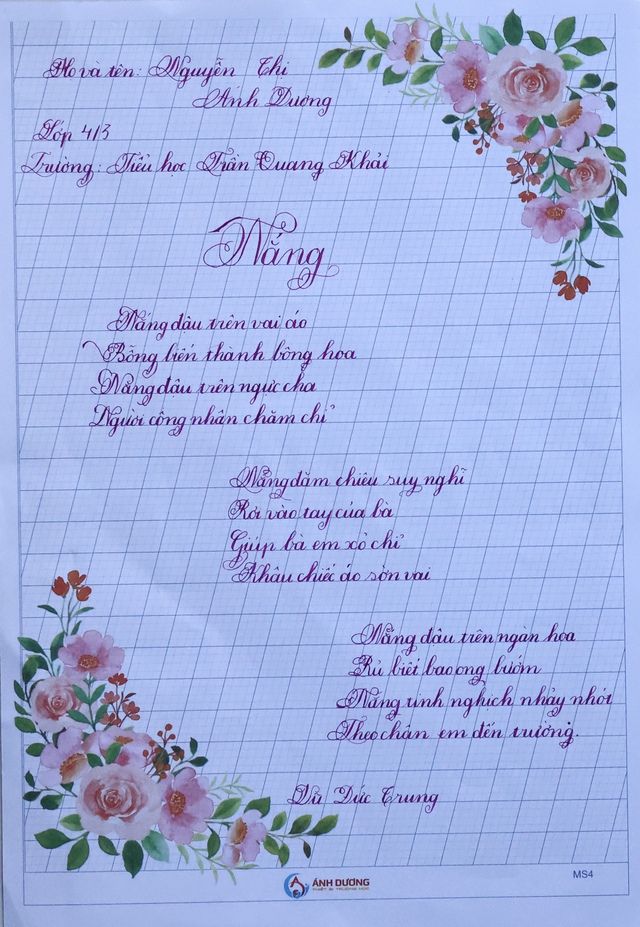 Họ và tên: Nguyễn Thị
Ánh Dương
Lớp 4/3
Trường: Tiểu học Trần Quang Khải
Nắng
Nắng đậu trên vai áo
Bỗng biến thành bông hoa
Nắng đậu trên ngực cha
Người công nhân chăm chỉ
Nắng đăm chiêu suy nghĩ
Rơi vào tay của bà
Giúp bà em xỏ chỉ
Khâu chiếc áo sờn vai
Nắng đậu trên ngàn hoa
Rủ biết bao ong bướm
Nắng tinh nghịch nhảy nhót
Theo chân em đến trường.
Vũ Đức Trung
ÁNH DƯƠNG
THIẾT BỊ TRƯỜNG HỌC
MS4